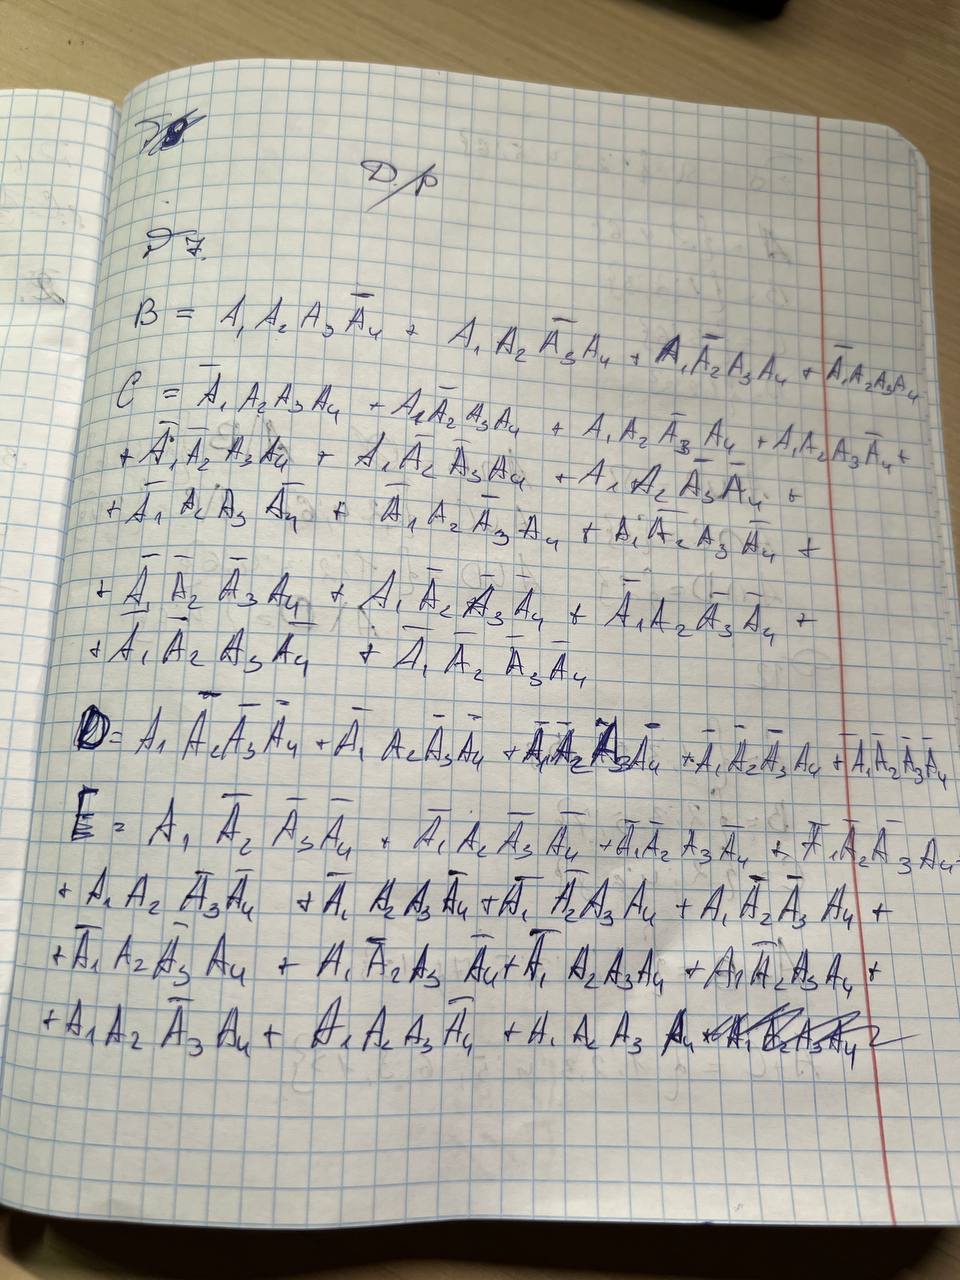 Д/Р
Д7.
B = A₁ A₂ A₃ A̅₄ + A₁ A₂ A̅₃ A₄ + A₁ A̅₂ A₃ A₄ + A̅₁ A₂ A₃ A₄
C = A̅₁ A₂ A₃ A₄ + A₁ A̅₂ A₃ A₄ + A₁ A₂ A̅₃ A₄ + A₁ A₂ A₃ A̅₄ +
+ A̅₁ A̅₂ A₃ A₄ + A₁ A̅₂ A̅₃ A₄ + A₁ A₂ A̅₃ A̅₄ +
+ A̅₁ A₂ A₃ A̅₄ + A̅₁ A₂ A̅₃ A₄ + A₁ A̅₂ A₃ A̅₄ +
+ A̅ A̅₂ A̅₃ A₄ + A₁ A̅₂ A̅₃ A̅₄ + A̅₁ A₂ A̅₃ A̅₄ +
+ A̅₁ A̅₂ A₃ A̅₄ + A̅₁ A̅₂ A̅₃ A̅₄
D = A₁ A̅₂ A̅₃ A̅₄ + A̅₁ A₂ A̅₃ A̅₄ + A̅₁ A̅₂ A₃ A̅₄ + A̅₁ A̅₂ A̅₃ A₄ + A̅₁ A̅₂ A̅₃ A̅₄
E = A₁ A̅₂ A̅₃ A̅₄ + A̅₁ A₂ A̅₃ A̅₄ + A̅₁ A̅₂ A₃ A̅₄ + A̅₁ A̅₂ A̅₃ A₄ +
+ A₁ A₂ A̅₃ A̅₄ + A̅₁ A₂ A₃ A̅₄ + A̅₁ A̅₂ A₃ A₄ + A₁ A̅₂ A̅₃ A₄ +
+ A̅₁ A₂ A̅₃ A₄ + A₁ A̅₂ A₃ A̅₄ + A̅₁ A₂ A₃ A₄ + A₁ A̅₂ A₃ A₄ +
+ A₁ A₂ A̅₃ A₄ + A₁ A₂ A₃ A̅₄ + A₁ A₂ A₃ A₄